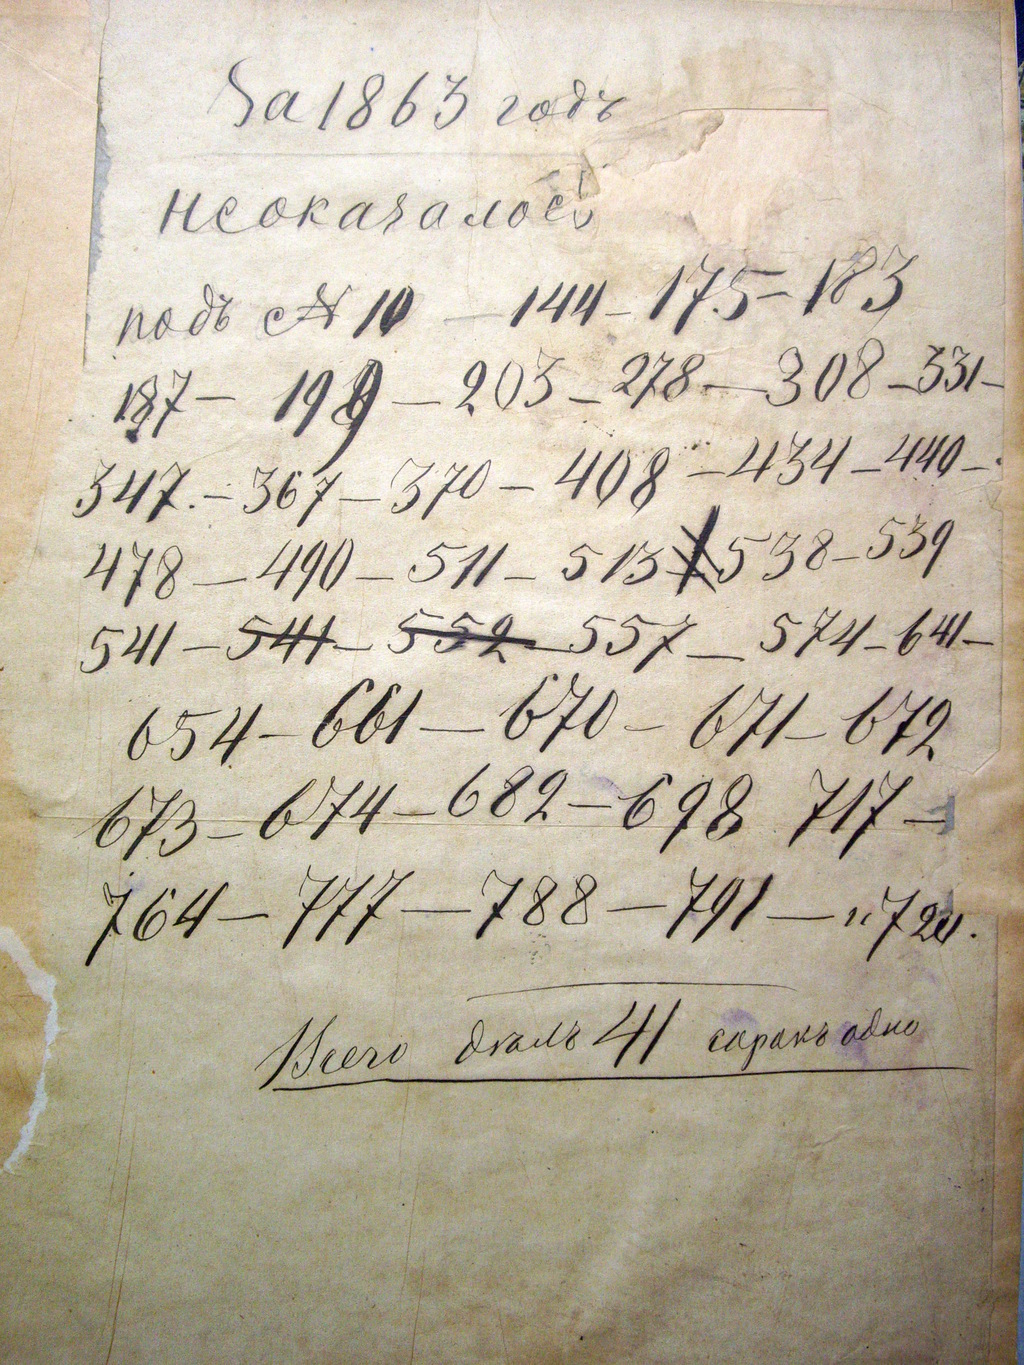 За 1863 годъ
неоказалось
подъ № 10 — 144 — 175 — 183
187 — 199 — 203 — 278 — 308 — 331 —
347. — 367 — 370 — 408 — 434 — 440 —
478 — 490 — 511 — 513 538 — 539
541 — 541 — 552 — 557 — 574 — 641 —
654 — 661 — 670 — 671 — 672
673 — 674 — 682 — 698 717 —
764 — 777 — 788 — 791 —
Всего делъ 41 сорокъ одно